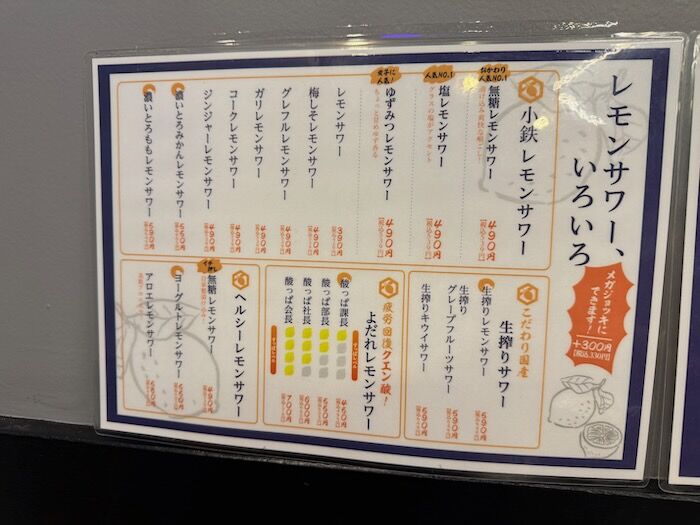 レモンサワー、
いろいろ
メガジョッキに
できます！
+300円
[税込330円]
小鉄レモンサワー
おかわり
人気NO.1
無糖レモンサワー
490円
人気NO.1
塩レモンサワー
グラスの塩がアクセント
490円
女子に
人気！
ゆずみつレモンサワー
490円
レモンサワー
390円
梅しそレモンサワー
490円
グレフルレモンサワー
490円
ガリレモンサワー
490円
コークレモンサワー
490円
ジンジャーレモンサワー
490円
濃いとろみかんレモンサワー
550円
濃いとろももレモンサワー
590円
こだわり国産
生搾りサワー
生搾りレモンサワー
590円
生搾り
グレープフルーツサワー
590円
生搾りキウイサワー
590円
疲労回復クエン酸！
よだれレモンサワー
すっぱレベル
酸っぱ課長
450円
酸っぱ部長
550円
酸っぱ社長
600円
酸っぱ会長
700円
すっぱレベル
ヘルシーレモンサワー
無糖レモンサワー
490円
ヨーグルトレモンサワー
550円
アロエレモンサワー
550円